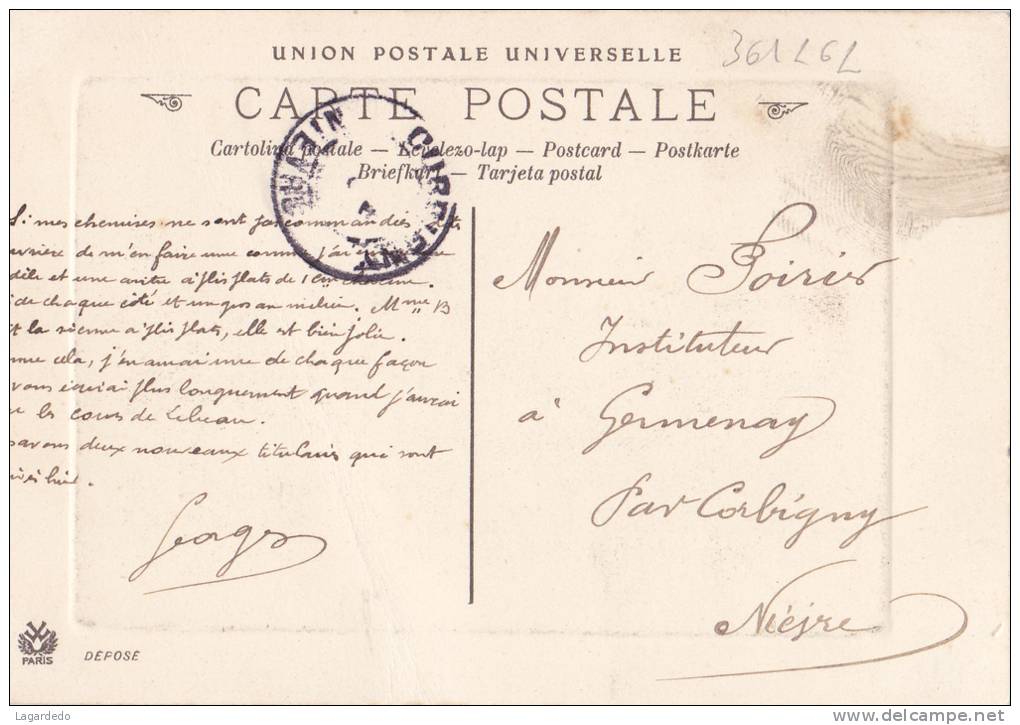 361 L6L
UNION POSTALE UNIVERSELLE
CARTE POSTALE
Cartolina postale — Levelezo-lap — Postcard — Postkarte
Briefkart — Tarjeta postal
NIEVRE
Si mes chemises ne sont pas commandées
uvrière de m'en faire une comme j'ai
dèle et une autre à plis plats de 1 cm
de chaque côté et un gros au milieu. Mme B
t la sienne à plis plats, elle est bien jolie.
me cela, j'en aurai une de chaque façon
vous écrirai plus longuement quand j'aurai
les cours de Lebeau.
avons deux nouveaux titulaires qui sont
ivés hier.
Georges
Monsieur Poirier
Instituteur
à Germenay
Par Corbigny
Nièvre
PARIS
DÉPOSÉ
Lagardedo
delcampe.net